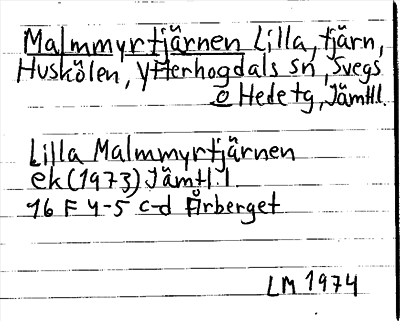 Malmmyrtjärnen Lilla, tjärn,
Huskölen, Ytterhogdals sn, Svegs
o Hede tg, Jämtl.
Lilla Malmmyrtjärnen
ek (1973) Jämtl. l.
16 F 4-5 c-d Årberget
LM 1974